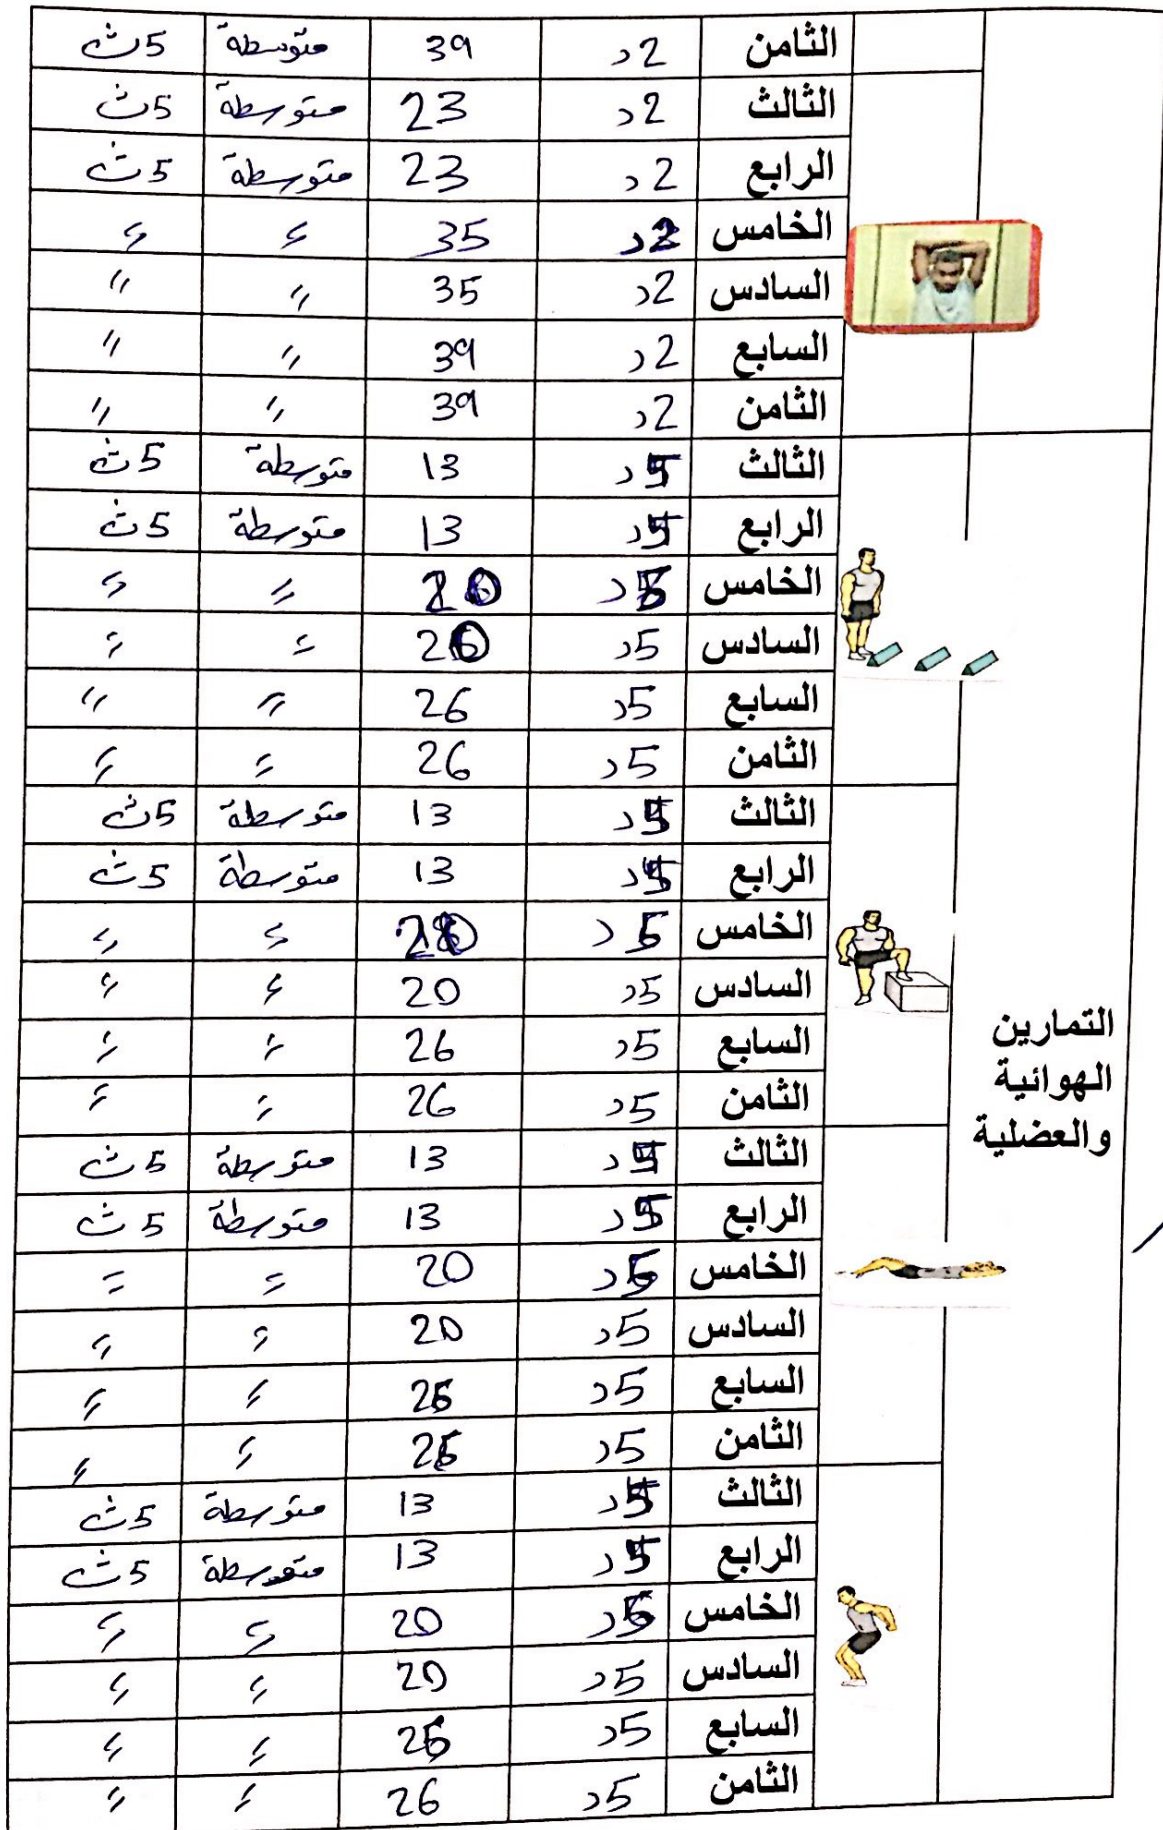 الثامن 2د 39 متوسطة 5ث
الثالث 2د 23 متوسطة 5ث
الرابع 2د 23 متوسطة 5ث
الخامس 2د 35 〃 〃
السادس 2د 35 〃 〃
السابع 2د 39 〃 〃
الثامن 2د 39 〃 〃
التمارين
الهوائية
والعضلية
الثالث 5د 13 متوسطة 5ث
الرابع 5د 13 متوسطة 5ث
الخامس 5د 〃 〃
السادس 5د 〃 〃
السابع 5د 26 〃 〃
الثامن 5د 26 〃 〃
الثالث 5د 13 متوسطة 5ث
الرابع 5د 13 متوسطة 5ث
الخامس 5د 〃 〃
السادس 5د 20 〃 〃
السابع 5د 26 〃 〃
الثامن 5د 26 〃 〃
الثالث 5د 13 متوسطة 5ث
الرابع 5د 13 متوسطة 5ث
الخامس 5د 20 〃 〃
السادس 5د 20 〃 〃
السابع 5د 26 〃 〃
الثامن 5د 26 〃 〃
الثالث 5د 13 متوسطة 5ث
الرابع 5د 13 متوسطة 5ث
الخامس 5د 20 〃 〃
السادس 5د 20 〃 〃
السابع 5د 26 〃 〃
الثامن 5د 26 〃 〃